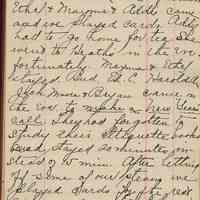 Ethel & Mayme & Addie came
and we played cards. Addie
had to go home for tea. She
went to Heaths in the eve
fortunately Mayme & Ethel
stayed. Bud, Ed. C. Harold
Jack Moore & Bryan came in
the eve to make a New Years
call. They had forgotten to
study their Etiquette book
and stayed 20 minutes in-
stead of 10 min. After letting
off some of our steam we
played cards